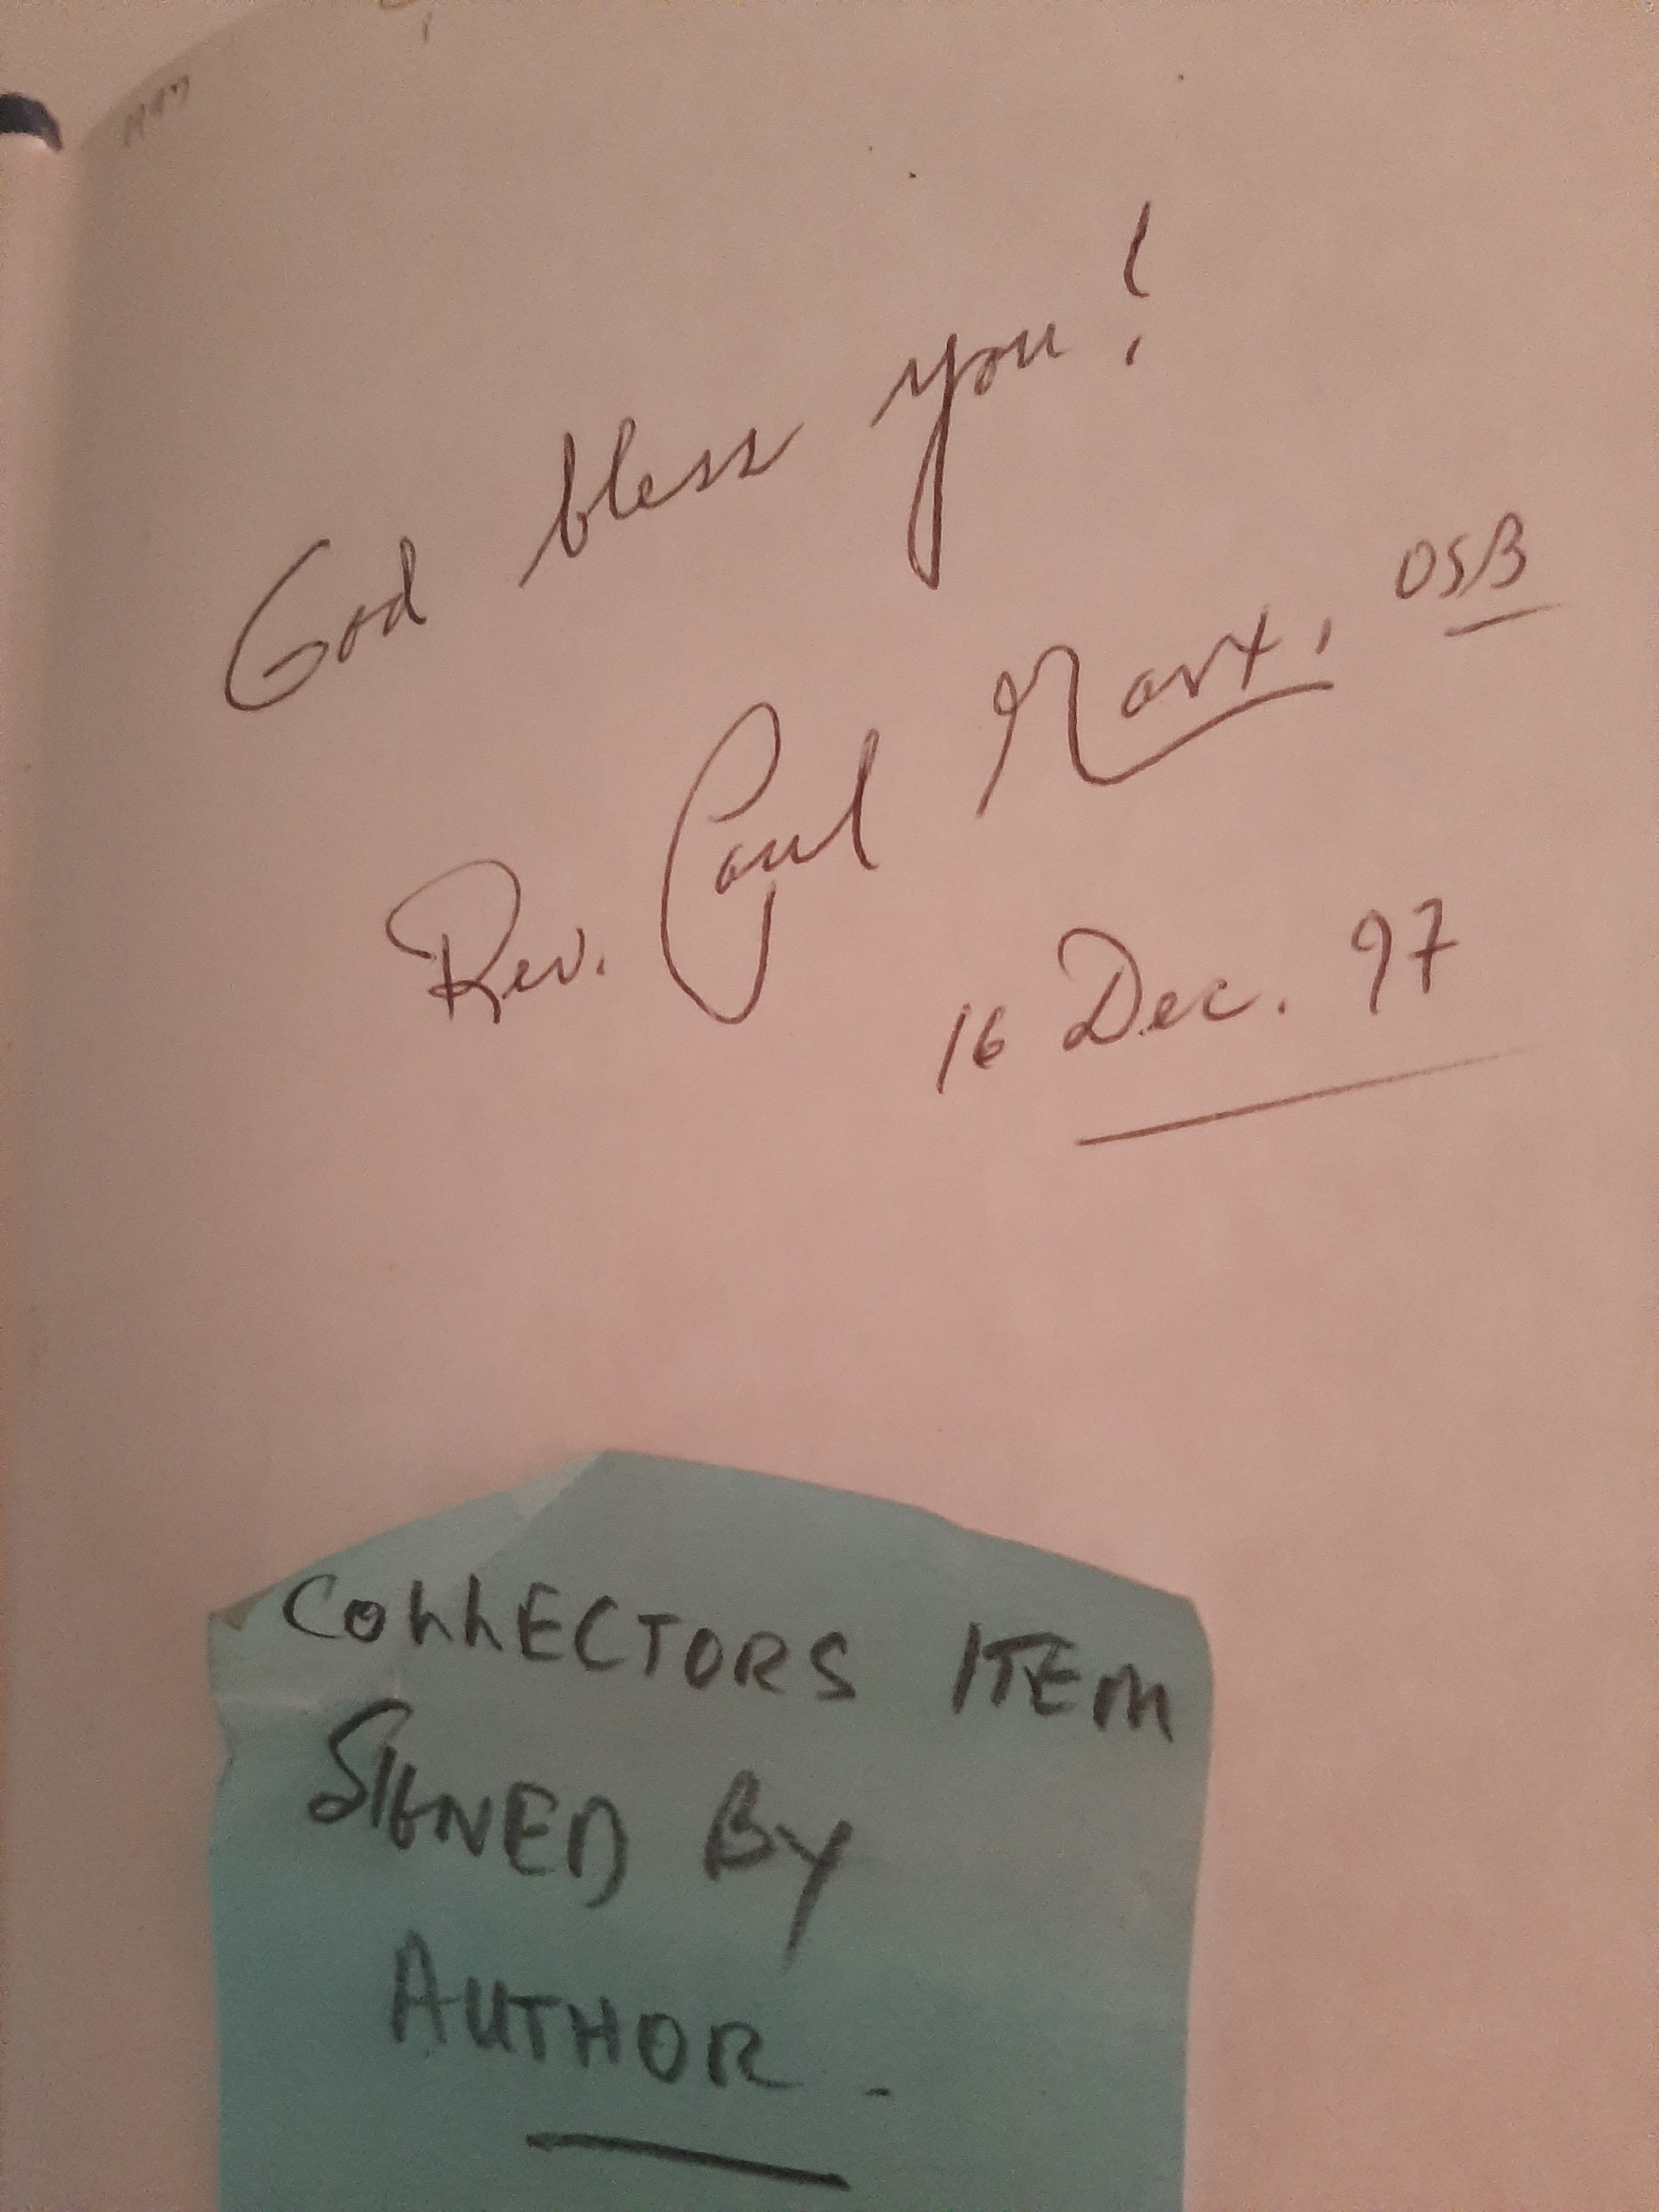 God bless you!
Rev. Paul Marx, OSB
16 Dec. 97
COLLECTORS ITEM
SIGNED BY
AUTHOR.